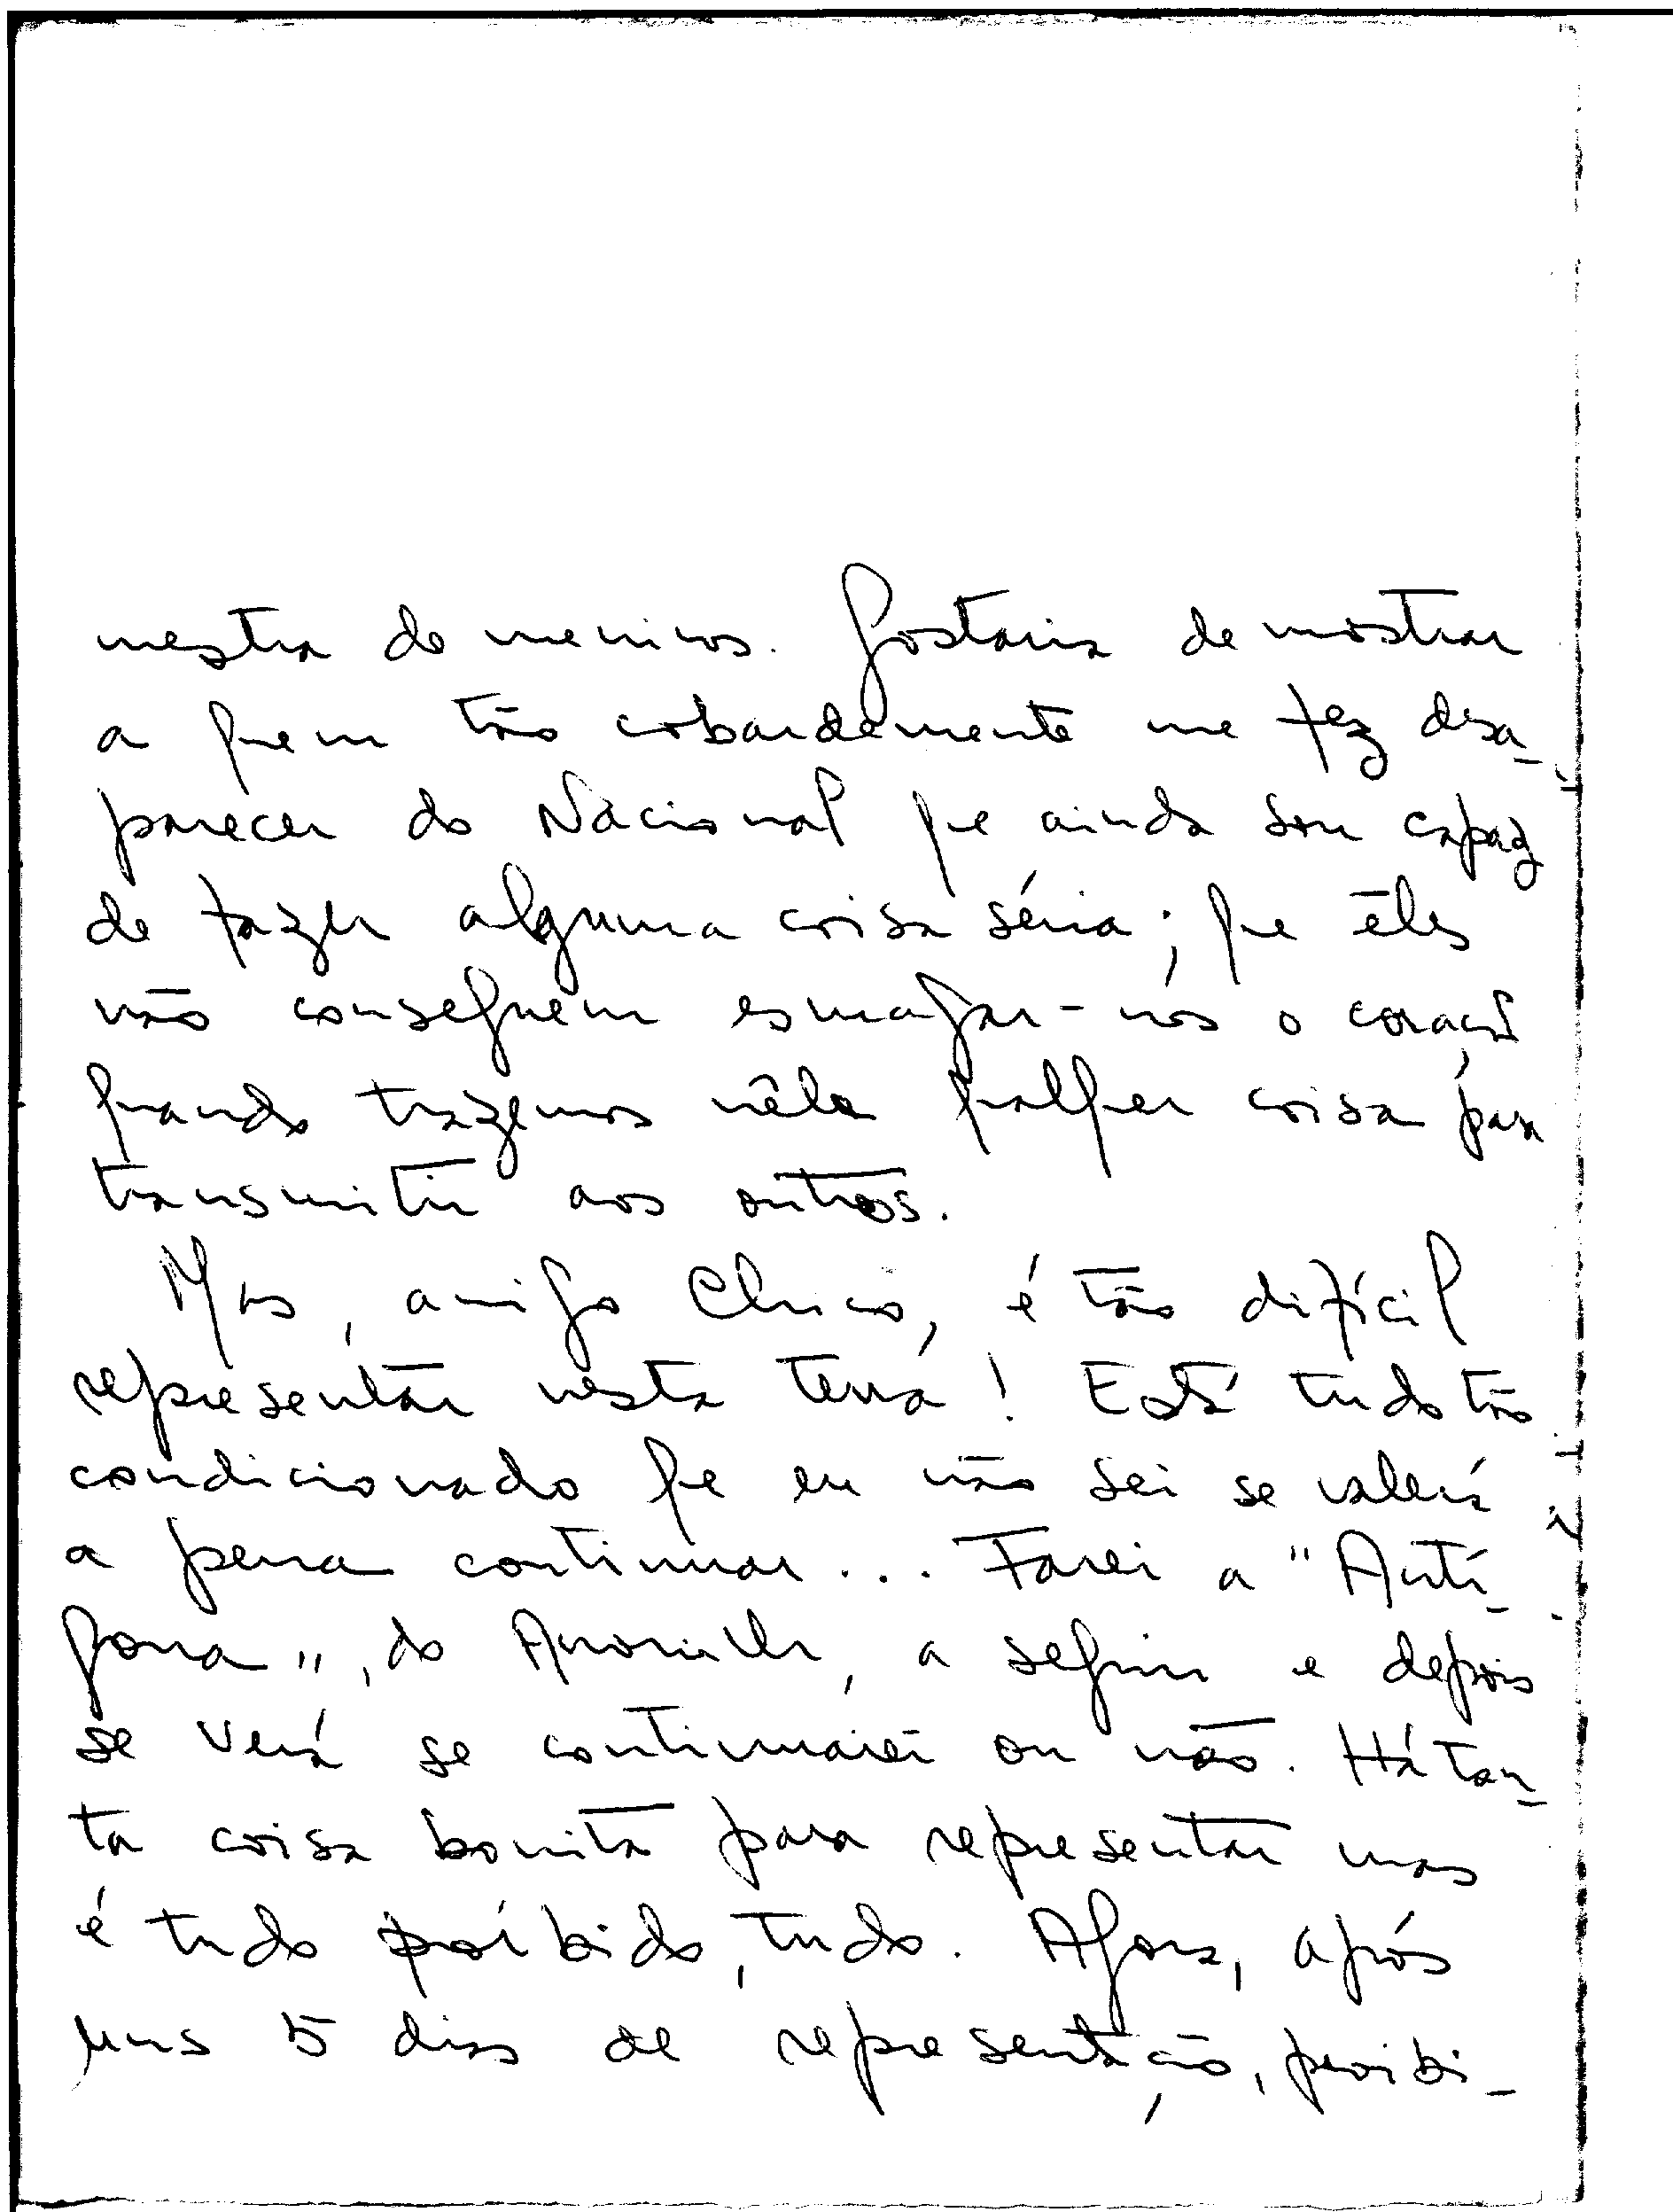 mestra de meninos. Gostaria de mostrar
a quem tão cobardemente me fez desa-
parecer do Nacional que ainda sou capaz
de fazer alguma coisa séria; que êles
não conseguem esmagar-nos o coração
quando trazemos nêle qualquer coisa para
transmitir aos outros.
Mas, amigo Chico, é tão difícil
representar nesta terra! Está tudo tão
condicionado que eu não sei se valerá
a pena continuar... Farei a "Antí-
gona", do Anouilh, a seguir e depois
se verá se continuarei ou não. Há tan-
ta coisa bonita para representar mas
é tudo proíbido, tudo. Agora, após
uns 5 dias de representação, proibi-